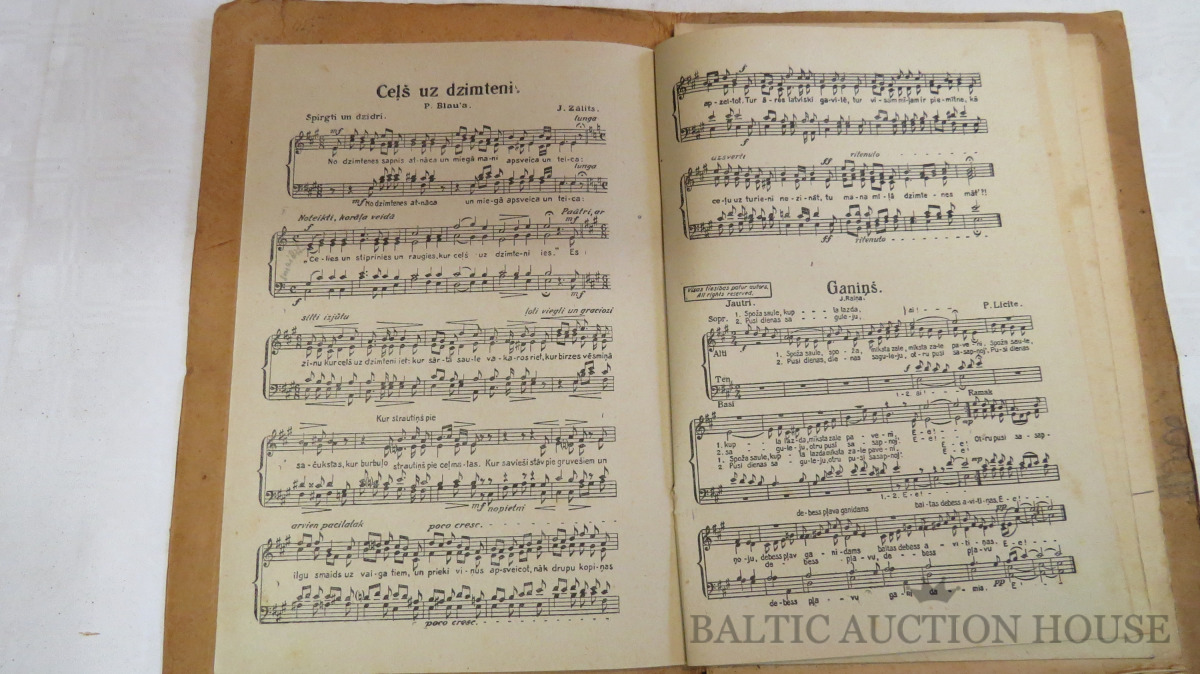 Ceļš uz dzimteni.
P. Blau'a.
J. Zālīts.
Spirgti un dzidri.
lunga
mf
No dzimtenes sapnis at-nāca un miegā ma-ni apsveica un tei-ca:
lunga
mf No dzimtenes at-nāca un mie-gā apsveica un tei-ca:
Noteikti, korāļa veidā
Paātri, ar
f
mf
"Ce-lies un stiprinies un raugies, kur ceļš uz dzimte-ni ies." Es
f
mf
silti izjūtu
ļoti viegli un graciozi
zi-nu kur ceļš uz dzimteni iet: kur sār-tā sau-le va-ka-ros riet, kur birzes vēsmiņā
Kur strautiņš pie
sa-čukstas, kur burbuļo strautiņš pie ceļma-las. Kur savieši stāv pie gruvešiem un
mf nopietni
arvien pacilātāk
poco cresc.
ilgu smaids uz vai-ga tiem, un prieki vi-ņus ap-sveicot, nāk drupu kopi-ņas
poco cresc.
f
ap-zel-tot. Tur ā-rēs latviski ga-vi-lē, tur vi-sum mīļam ir pie-mītne, kā
f
uzsverti
ff
ritenuto
ce-ļu uz turie-ni ne-zi-nāt, tu ma-na mī-ļā dzimte-nes māt'?!
ff ritenuto
Visas tiesības patur autors.
All rights reserved.
Ganiņš.
J. Raiņa.
Jautri.
P. Līcīte.
Sopr.
1. Spoža saule, kup - la lazda,
2. Pusi dienas sa - gule-ju,
Alti
1. Spoža saule, spo - ža, mīksta zāle, mīksta zāle pa-vē-nī. Spoža sau-le,
2. Pusi dienas, die-nas sagu-le-ju, ot-ru pusi sa-sap-ņoj'. Pu-si dienas
Ten.
Basi
1.-2. ai!
Ramāk
1. kup - la lazda, mīksta zāle pa-vē-nī. E-e!
2. sa - gu-le-ju, otru pusi sa-sap-ņoj'. E-e! Ot-ru pusi sa-sap-
1. Spoža saule, kup - la lazda mīksta zā-le pavē-nī. E-e!
2. Pusi dienas sa - gu-le-ju, otru pu-si sasapņoj'. E-e!
mp
1.-2. E-e!
de-bess pļava ganīdams
bal-tas debess a-vi-ti-ņas. E-e!
ņo-ju, debess pļav ga-nī-dams baltas debess a-vi-ti-ņas. E-e!
de - bess pļa-vu de - bess pļa-vu
de-bess pļa-vu
pp E!
BALTIC AUCTION HOUSE